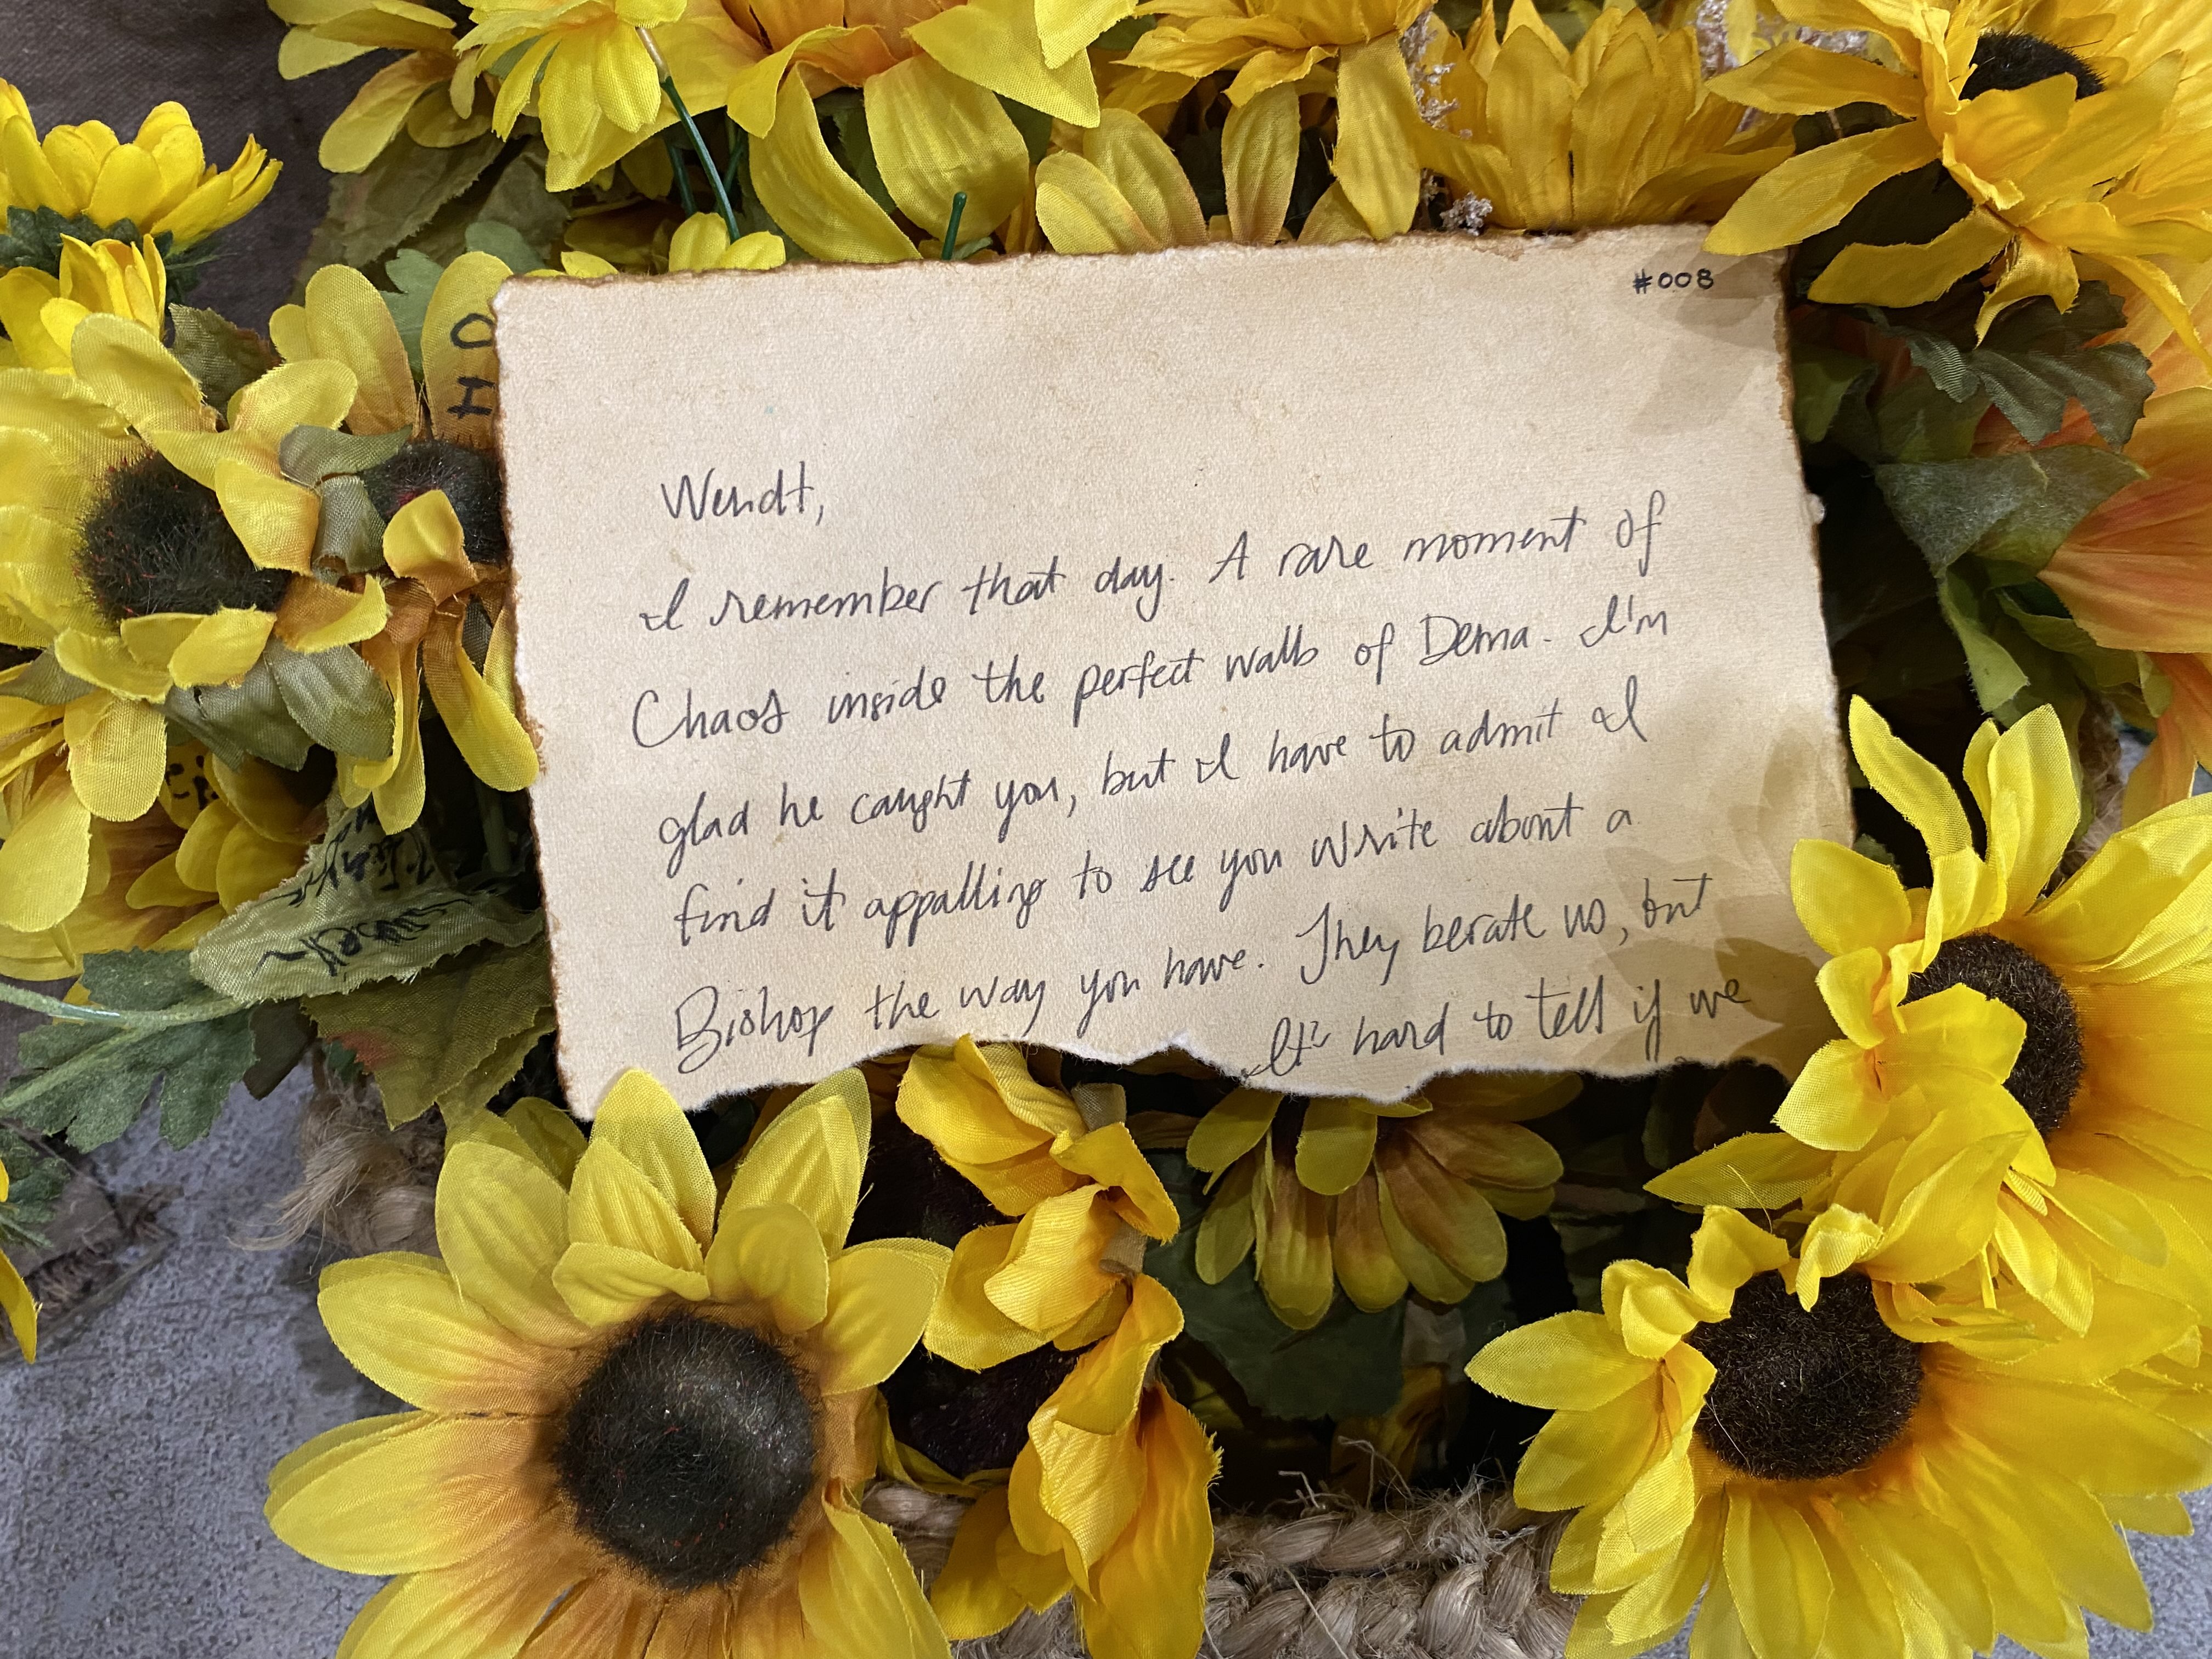 #008
Wendt,
I remember that day. A rare moment of
Chaos inside the perfect walls of Dema. I'm
glad he caught you, but I have to admit I
find it appalling to see you write about a
Bishop the way you have. They berate us, but
It's hard to tell if we